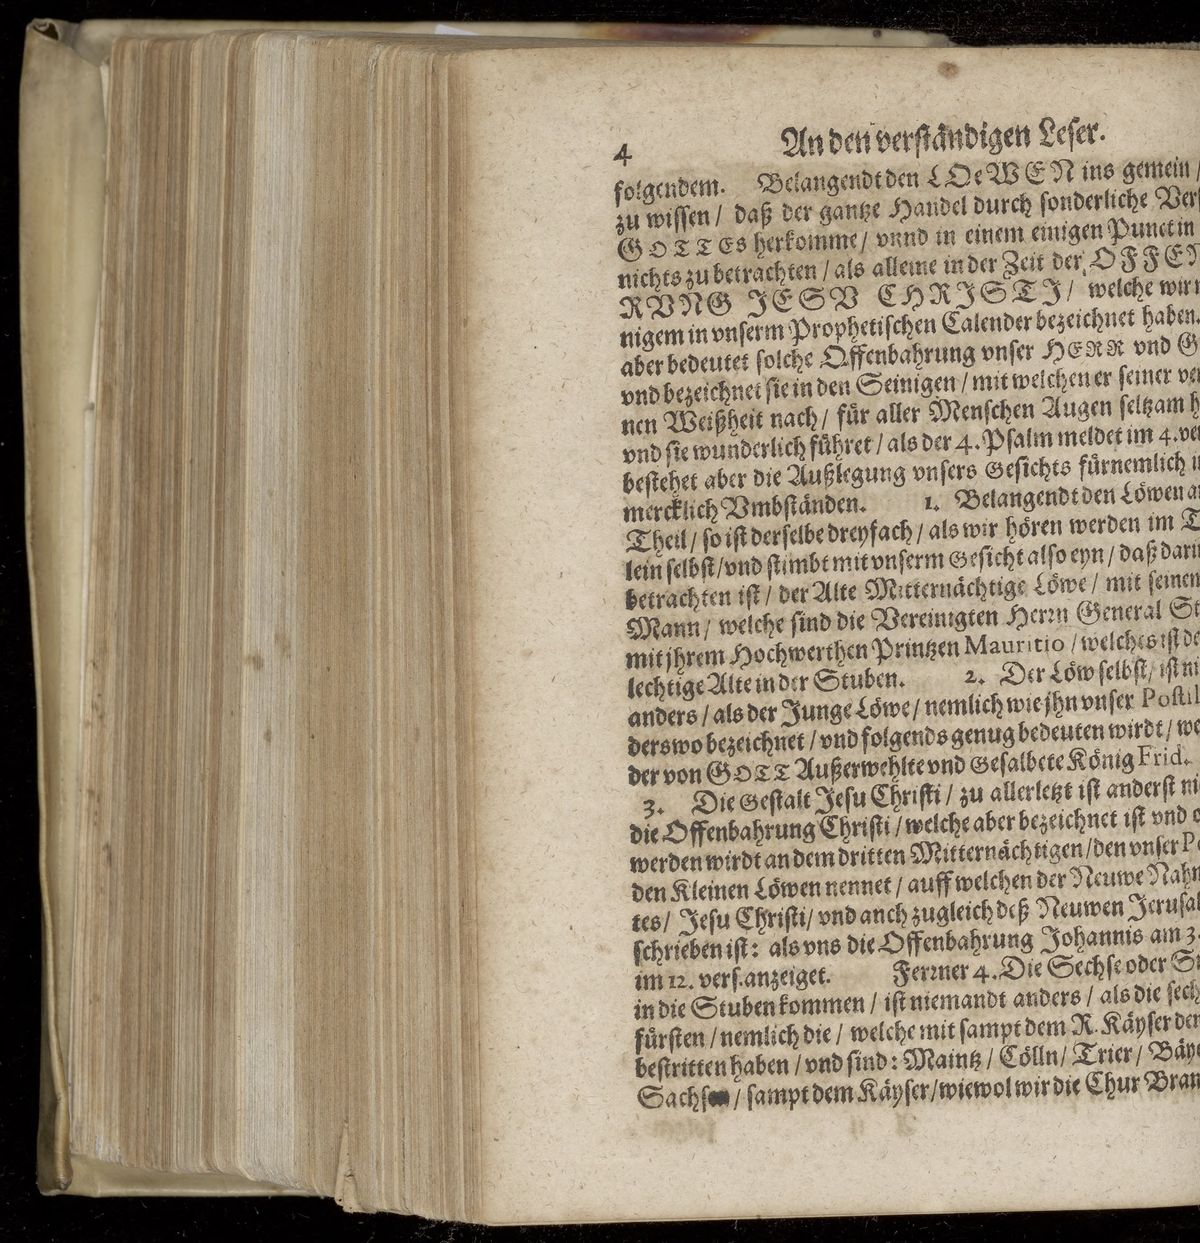 4 An den verständigen Leser.
folgendem. Belangendt den LOeWEN ins gemein /
zu wissen / daß der gantze Handel durch sonderliche
GOTTEs herkomme / vnnd in einem einigen Punct in
nichts zu betrachten / als alleine in der Zeit der OFFEN
RVNG JESV CHRISTI / welche wir
nigem in vnserm Prophetischen Calender bezeichnet haben.
aber bedeutet solche Offenbahrung vnser HERR vnd G
vnd bezeichnet sie in den Seinigen / mit welchen er seiner
nen Weißheit nach / für aller Menschen Augen seltzam h
vnd sie wunderlich führet / als der 4. Psalm meldet im 4. ver
bestehet aber die Außlegung vnsers Gesichts fürnemlich
mercklich Vmbständen. 1. Belangendt den Löwen
Theil / so ist derselbe dreyfach / als wir hören werden im T
lein selbst / vnd stimbt mit vnserm Gesicht also eyn / daß
betrachten ist / der Alte Mitternächtige Löwe / mit seinem
Mann / welche sind die Vereinigten Herrn General St
mit jhrem Hochwerthen Printzen Mauritio / welches ist
lechtige Alte in der Stuben. 2. Der Löw selbst / ist
anders / als der Junge Löwe / nemlich wie jhn vnser Postil
derswo bezeichnet / vnd folgends genug bedeuten wirdt / we
der von GOTT Außerwehlte vnd Gesalbete König Frid.
3. Die Gestalt Jesu Christi / zu allerletzt ist anderst
die Offenbahrung Christi / welche aber bezeichnet ist vnd
werden wirdt an dem dritten Mitternächtigen / den vnser Po
den Kleinen Löwen nennet / auff welchen der Neuwe Nahm
tes / Jesu Christi / vnd auch zugleich deß Neuwen Jerusal
schrieben ist : als vns die Offenbahrung Johannis am 3.
im 12. vers. anzeiget. Ferrner 4. Die Sechse oder
in die Stuben kommen / ist niemandt anders / als die sech
fürsten / nemlich die / welche mit sampt dem R. Käyser den
bestritten haben / vnd sind : Maintz / Cölln / Trier / Bäye
Sachsen / sampt dem Käyser / wiewol wir die Chur Bran